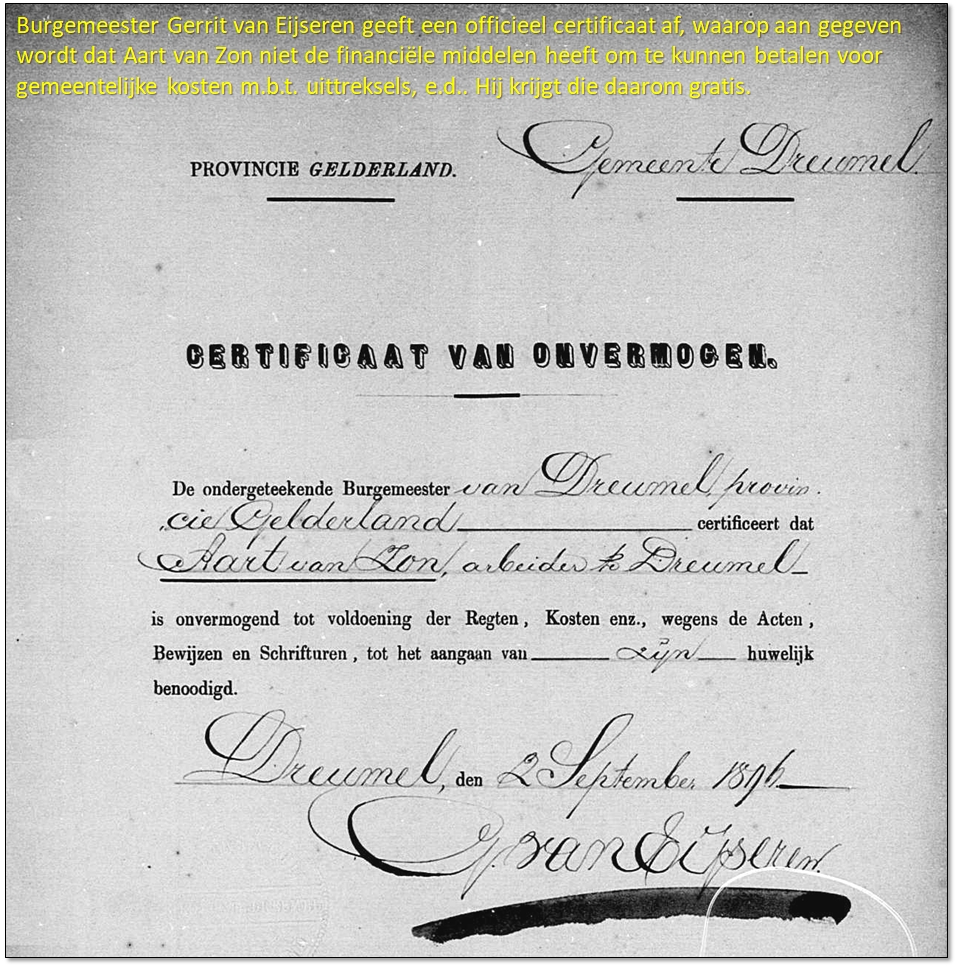 Burgemeester Gerrit van Eijseren geeft een officieel certificaat af, waarop aan gegeven
wordt dat Aart van Zon niet de financiële middelen heeft om te kunnen betalen voor
gemeentelijke kosten m.b.t. uittreksels, e.d.. Hij krijgt die daarom gratis.
PROVINCIE GELDERLAND.
Gemeente Dreumel.
CERTIFICAAT VAN ONVERMOGEN.
De ondergeteekende Burgemeester van Dreumel, provin-
cie Gelderland certificeert dat
Aart van Zon, arbeider te Dreumel
is onvermogend tot voldoening der Regten, Kosten enz., wegens de Acten,
Bewijzen en Schrifturen, tot het aangaan van zijn huwelijk
benoodigd.
Dreumel, den 2 September 1896
G. van Eijseren.